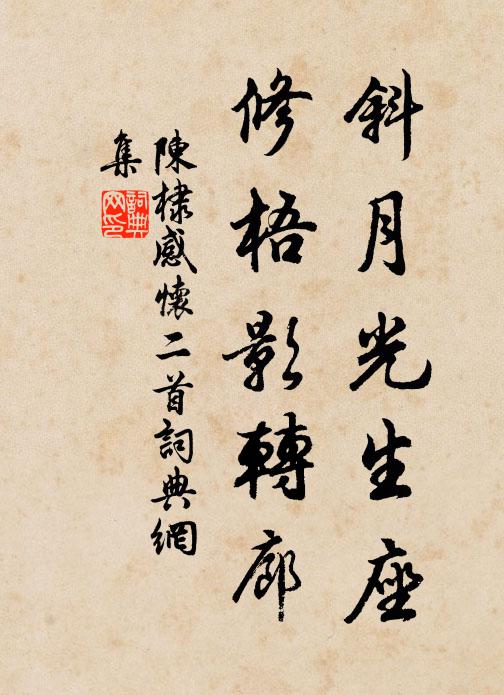 斜月光生座
修梧影轉廊
陳棣感懷二首詞典網
集
詞典
网印